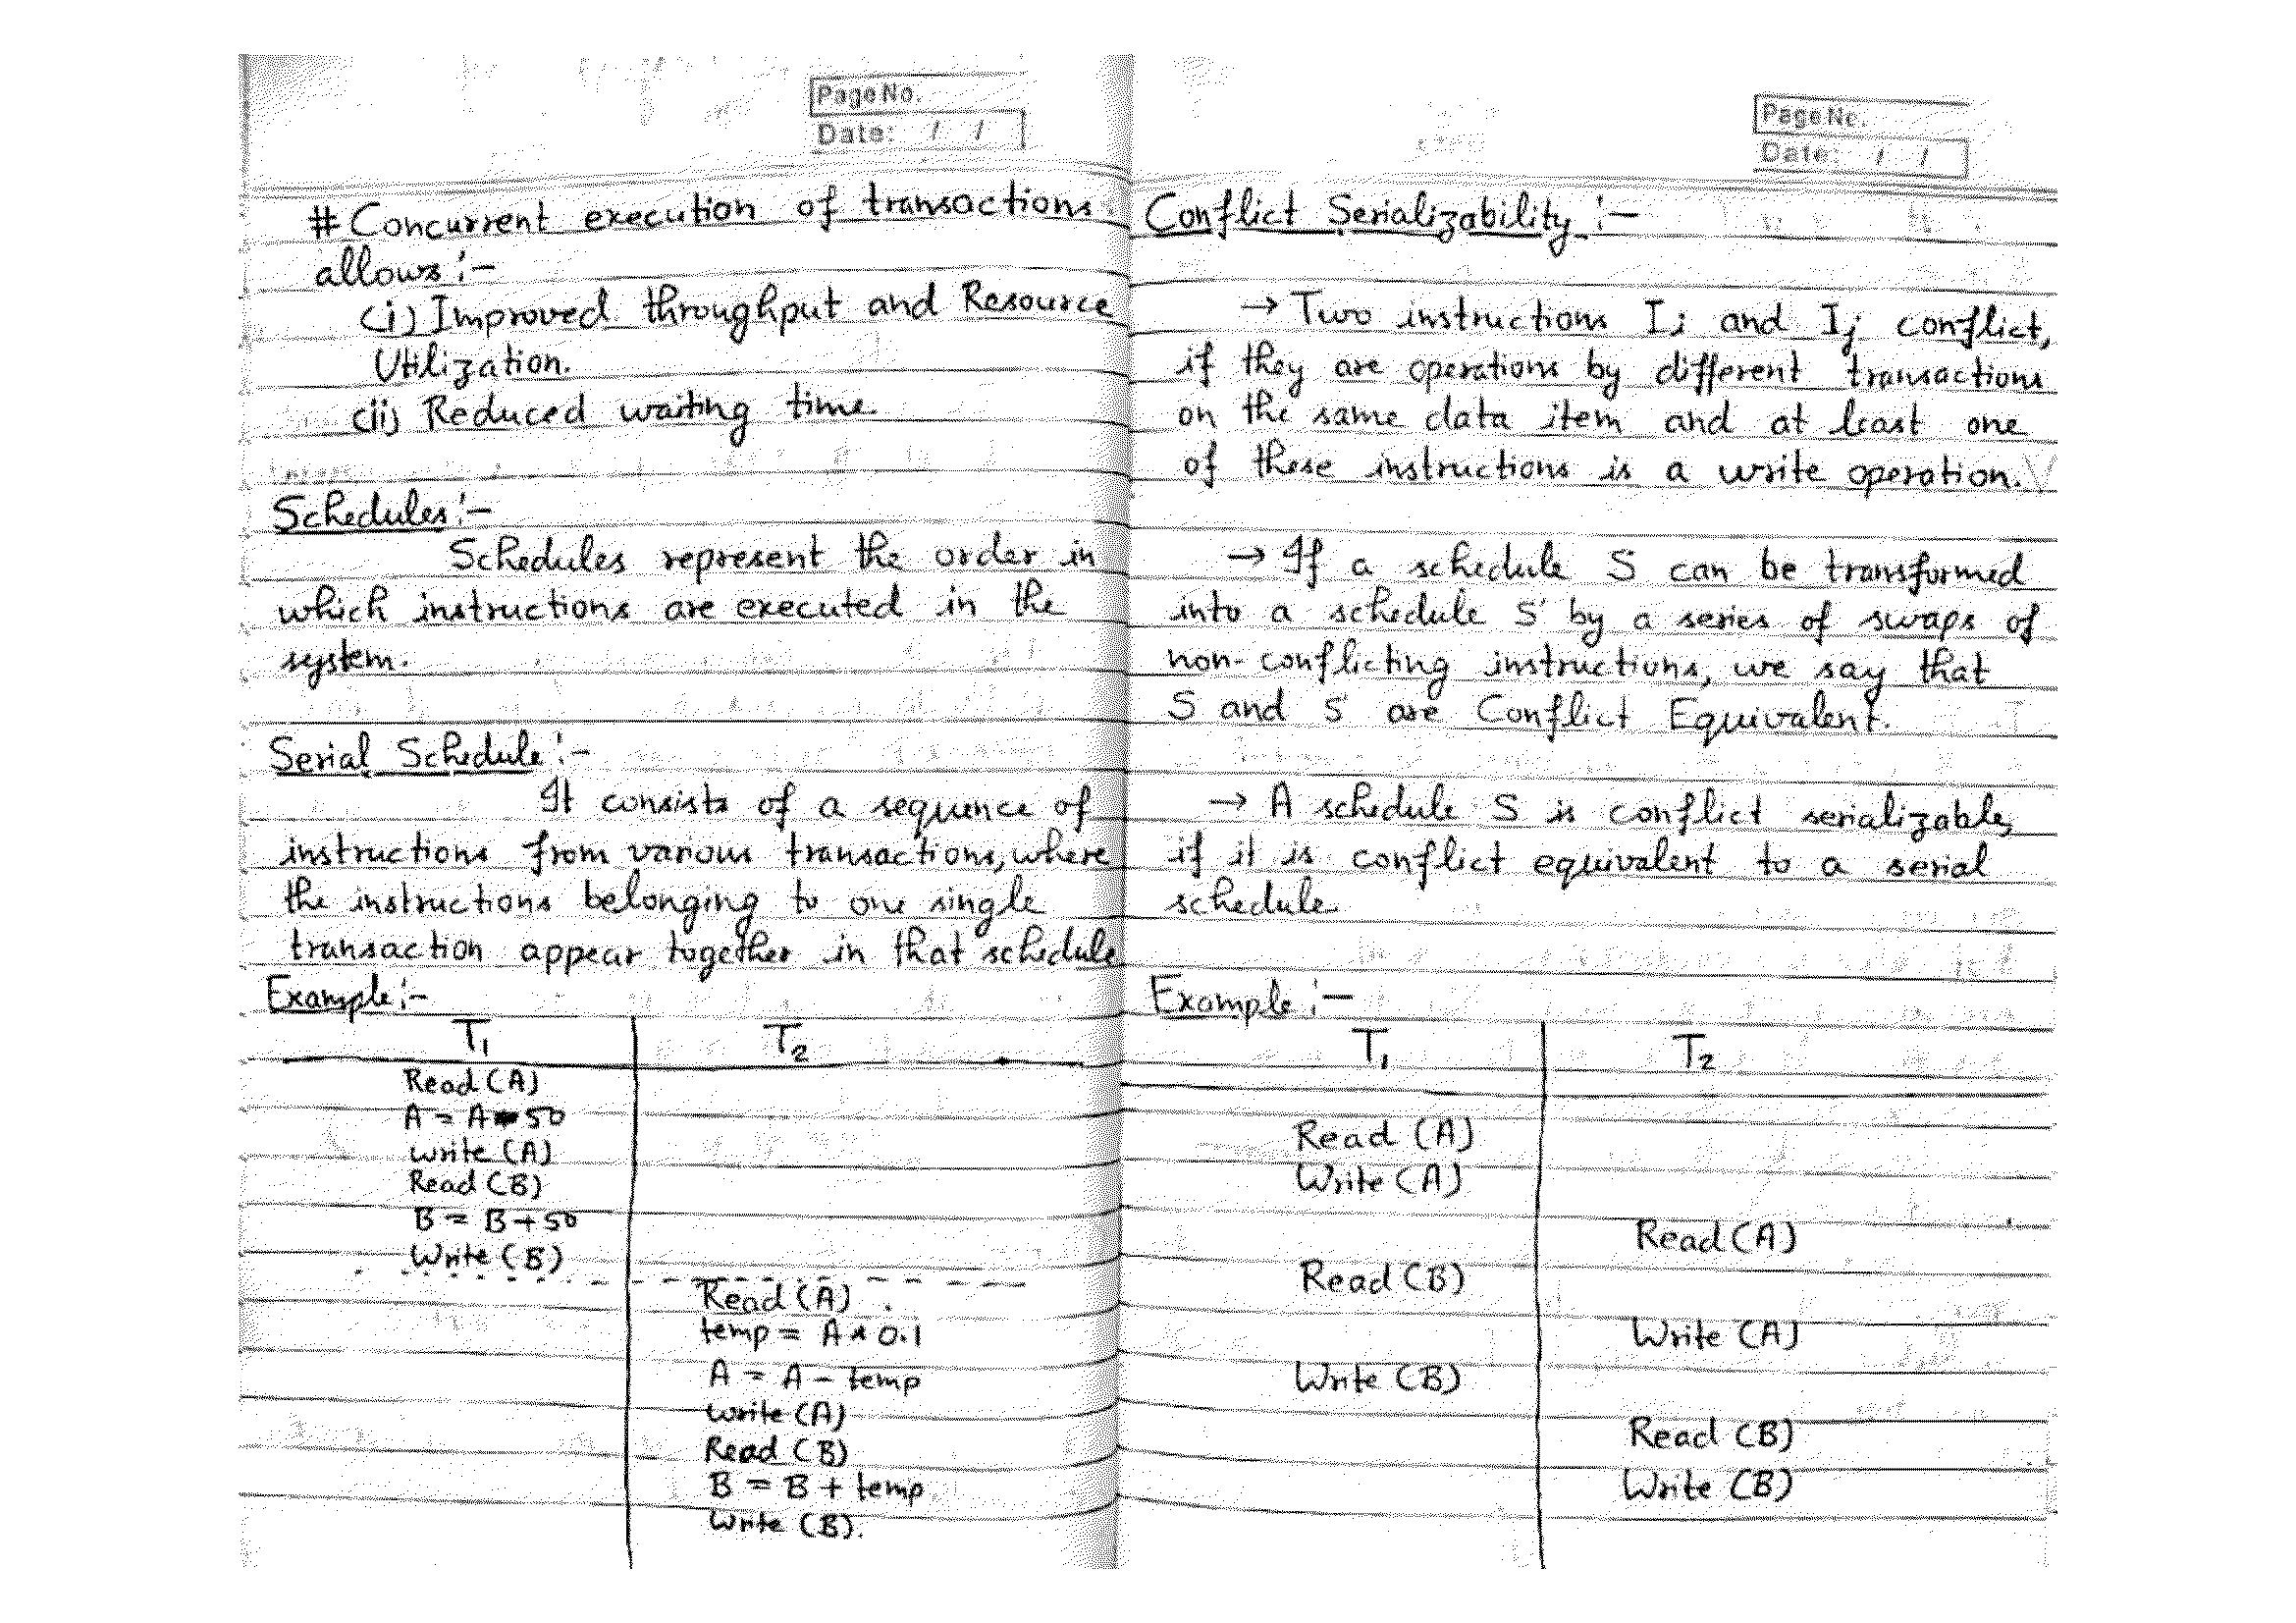 Page No.
Date: / /
# Concurrent execution of transactions
allows :-
(i) Improved throughput and Resource
Utilization.
(ii) Reduced waiting time.
Schedules :-
Schedules represent the order in
which instructions are executed in the
system.
Serial Schedule :-
It consists of a sequence of
instructions from various transactions, where
the instructions belonging to one single
transaction appear together in that schedule
Example :-
T1 T2
Read (A)
A = A - 50
Write (A)
Read (B)
B = B + 50
Write (B)
Read (A)
temp = A * 0.1
A = A - temp
Write (A)
Read (B)
B = B + temp
Write (B).
Page No.
Date: / /
Conflict Serializability :-
→ Two instructions Ii and Ij conflict,
if they are operations by different transactions
on the same data item and at least one
of these instructions is a write operation.
→ If a schedule S can be transformed
into a schedule S' by a series of swaps of
non-conflicting instructions, we say that
S and S' are Conflict Equivalent.
→ A schedule S is conflict serializable,
if it is conflict equivalent to a serial
schedule.
Example :-
T1 T2
Read (A)
Write (A)
Read (A)
Read (B)
Write (A)
Write (B)
Read (B)
Write (B)